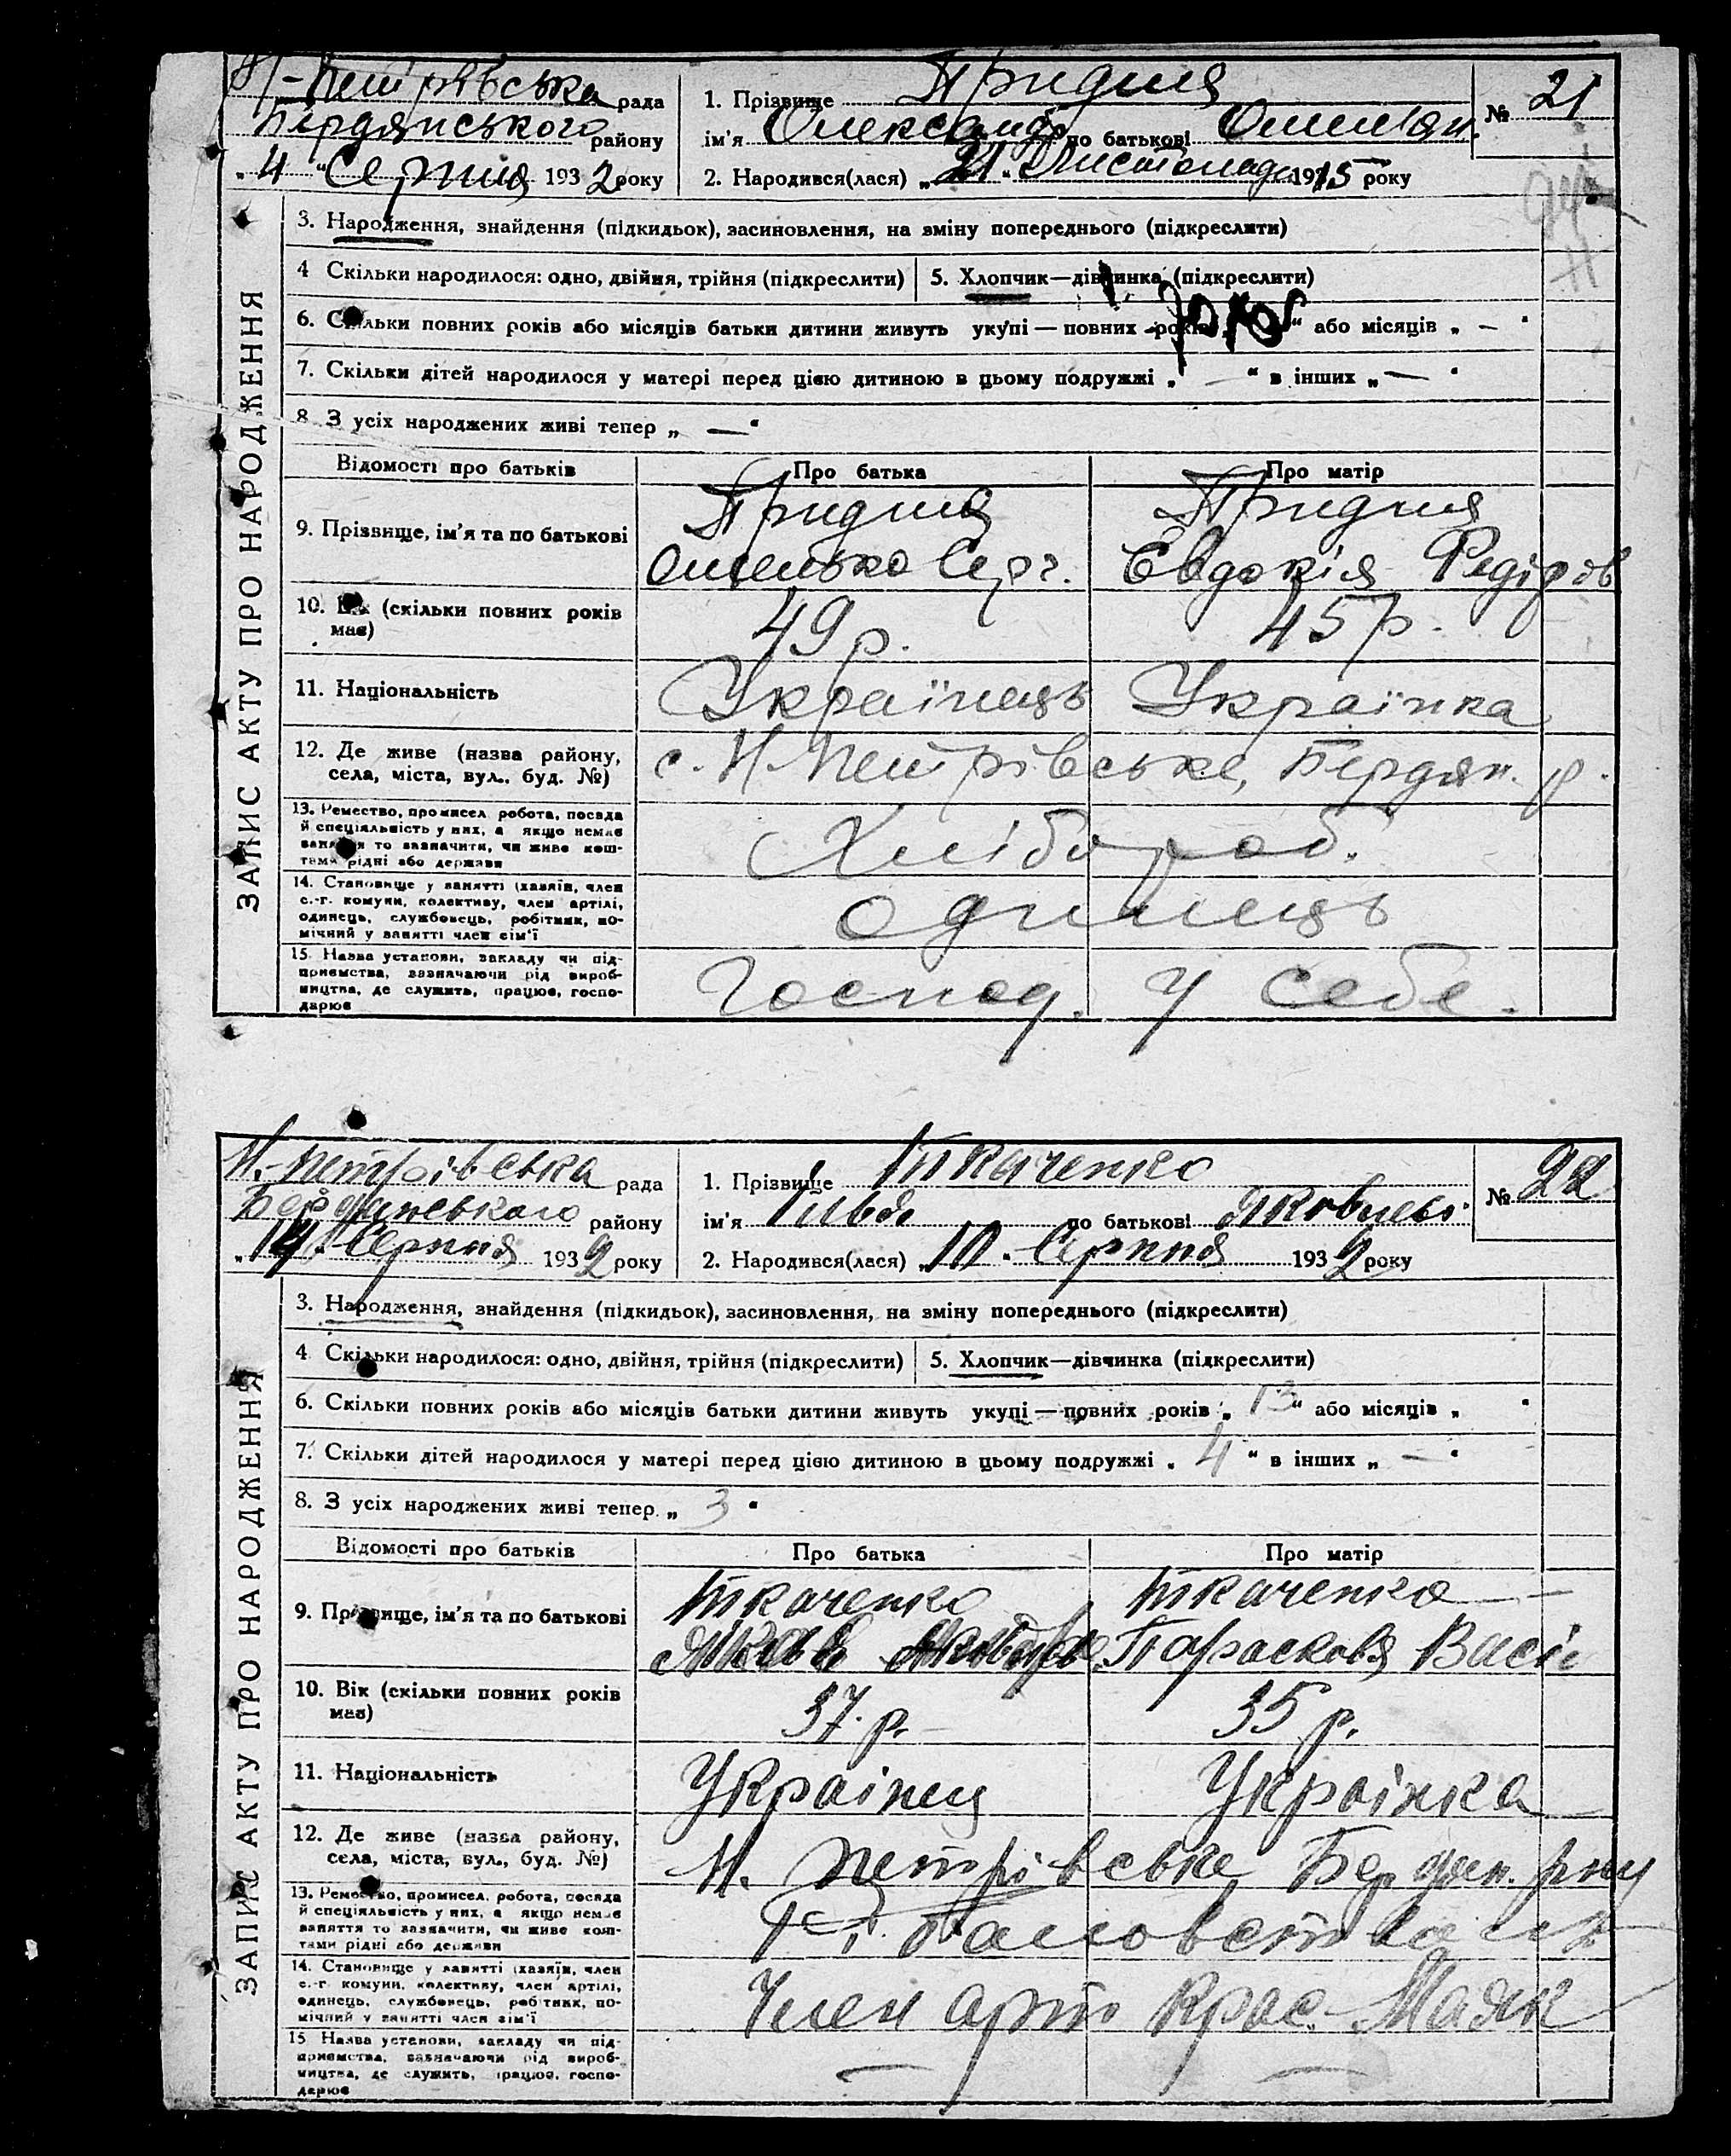 Н-Петрівська рада
Бердянського району
„4“ Серпня 1932 року
1. Прізвище Придня
ім'я Олександр по батькові Омельян.
2. Народився(лася) „21“ Листопада 1915 року
№ 21
ЗАПИС АКТУ ПРО НАРОДЖЕННЯ
3. Народження, знайдення (підкидьок), засиновлення, на зміну попереднього (підкреслити)
4 Скільки народилося: одно, двійня, трійня (підкреслити)
5. Хлопчик—дівчинка (підкреслити)
6. Скільки повних років або місяців батьки дитини живуть укупі — повних років “ або місяців „ — “
7. Скільки дітей народилося у матері перед цією дитиною в цьому подружжі „ — “ в інших „ — “
8. З усіх народжених живі тепер „ — “
Відомості про батьків Про батька Про матір
9. Прізвище, ім'я та по батькові
Придня
Омелько Серг.
Придня
Євдокія Федіров
10. Вік (скільки повних років має)
49 р. 45 р.
11. Національність Українець Українка
12. Де живе (назва району, села, міста, вул., буд. №)
с. Н. Петрівське, Бердян. р.
13. Ремество, промисел, робота, посада
й спеціяльність у них, а якщо немає
заняття то зазначити, чи живе кош-
тами рідні або держави
Хлібороб.
14. Становище у занятті (хазяїн, член
с.-г. комуни, колективу, член артілі,
одинець, службовець, робітник, по-
мічний у занятті член сім'ї
Одинець
15. Назва установи, закладу чи під-
приємства, зазначаючи рід вироб-
ництва, де служить, працює, госпо-
дарює
Господ. у себе.
Н.-Петрівська рада
Бердянського району
„14“ Серпня 1932 року
1. Прізвище Ткаченко
ім'я Ілья по батькові Яковлев.
2. Народився(лася) „10“ Серпня 1932 року
№ 22
ЗАПИС АКТУ ПРО НАРОДЖЕННЯ
3. Народження, знайдення (підкидьок), засиновлення, на зміну попереднього (підкреслити)
4 Скільки народилося: одно, двійня, трійня (підкреслити)
5. Хлопчик—дівчинка (підкреслити)
6. Скільки повних років або місяців батьки дитини живуть укупі — повних років „ 13 “ або місяців „ “
7. Скільки дітей народилося у матері перед цією дитиною в цьому подружжі „ 4 “ в інших „ — “
8. З усіх народжених живі тепер „ 3 “
Відомості про батьків Про батька Про матір
9. Прізвище, ім'я та по батькові
Ткаченко
Яков
Ткаченко
Парасковя Васи
10. Вік (скільки повних років має)
37 р. 35 р.
11. Національність Украінец Украінка
12. Де живе (назва району, села, міста, вул., буд. №)
Н. Петрівське Бердян. рну
13. Ремество, промисел, робота, посада
й спеціяльність у них, а якщо немає
заняття то зазначити, чи живе кош-
тами рідні або держави
14. Становище у занятті (хазяїн, член
с.-г. комуни, колективу, член артілі,
одинець, службовець, робітник, по-
мічний у занятті член сім'ї
Член арт Крас. Маяк
15. Назва установи, закладу чи під-
приємства, зазначаючи рід вироб-
ництва, де служить, працює, госпо-
дарює
— —